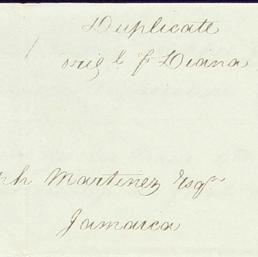 Duplicate
orig l. pr Diana
ph Martinez Esqr.
Jamaica